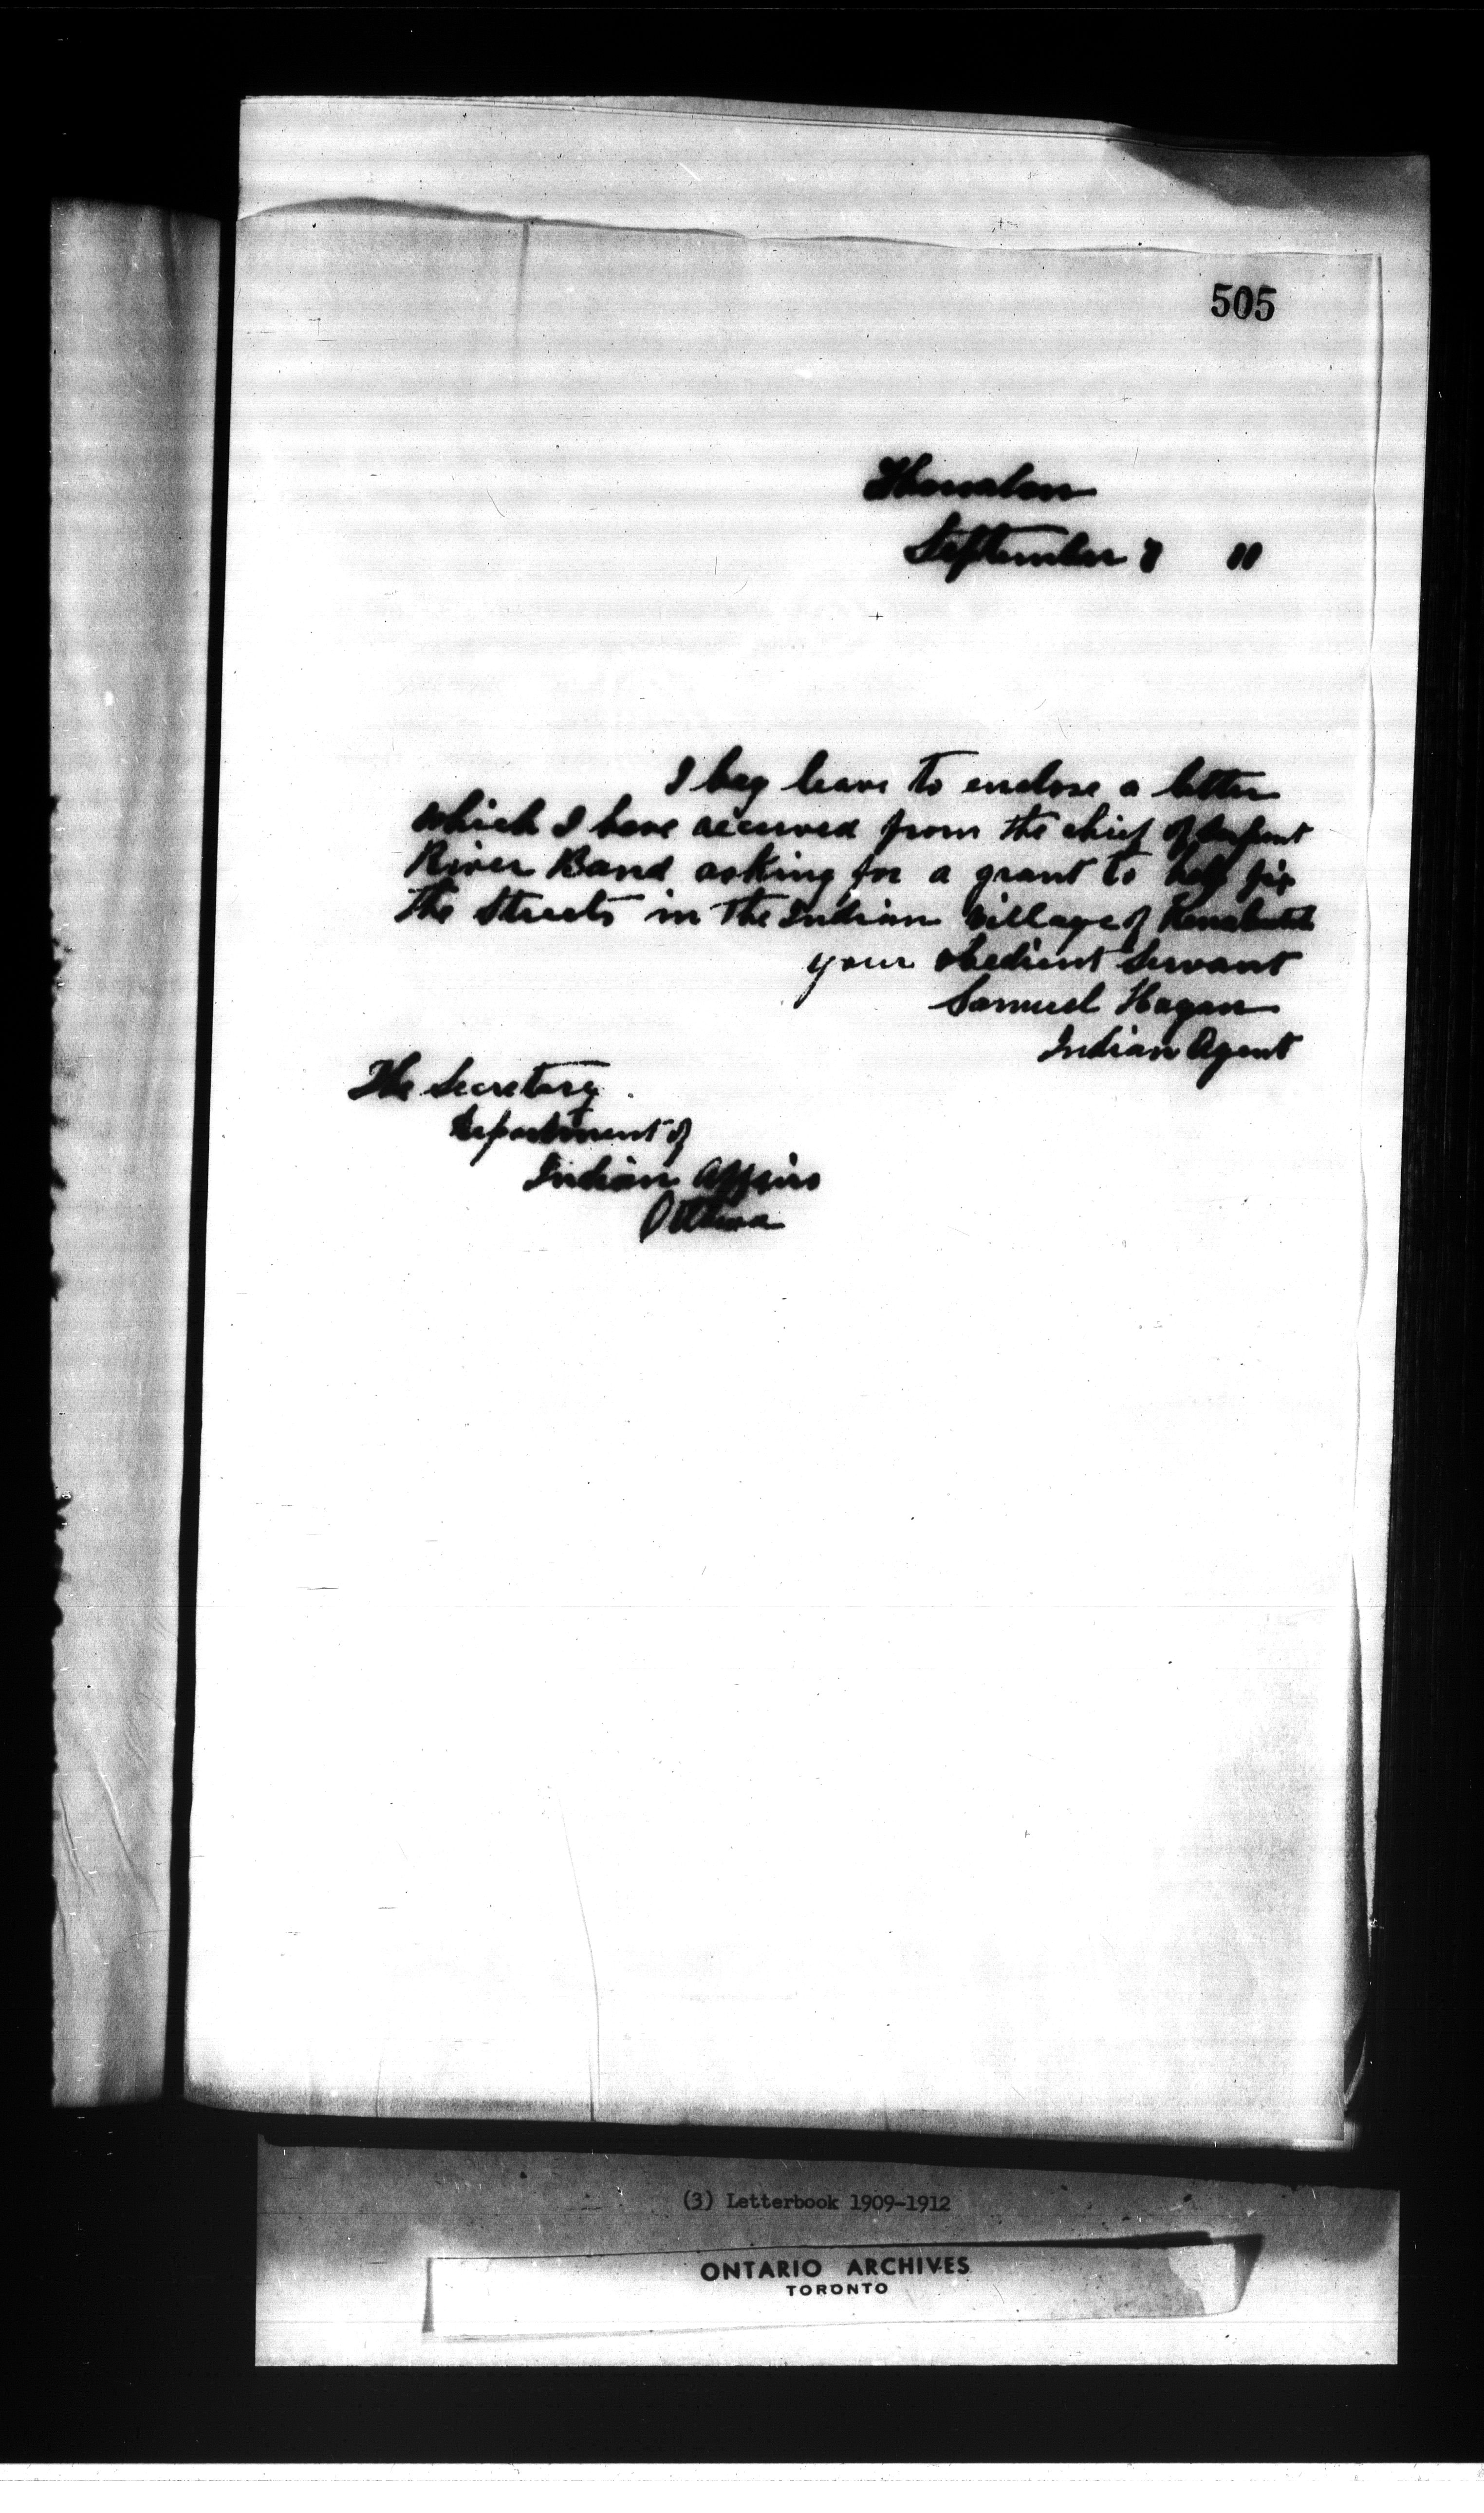 505
Thessalon
September 7 11
I beg leave to enclose a letter
which I have received from the chief of Serpent
River Band asking for a grant to help fix
the Streets in the Indian Village of
your obedient Servant
Samuel Hagan
Indian Agent
The Secretary
Department of
Indian Affairs
Ottawa
(3) Letterbook 1909-1912
ONTARIO ARCHIVES
TORONTO